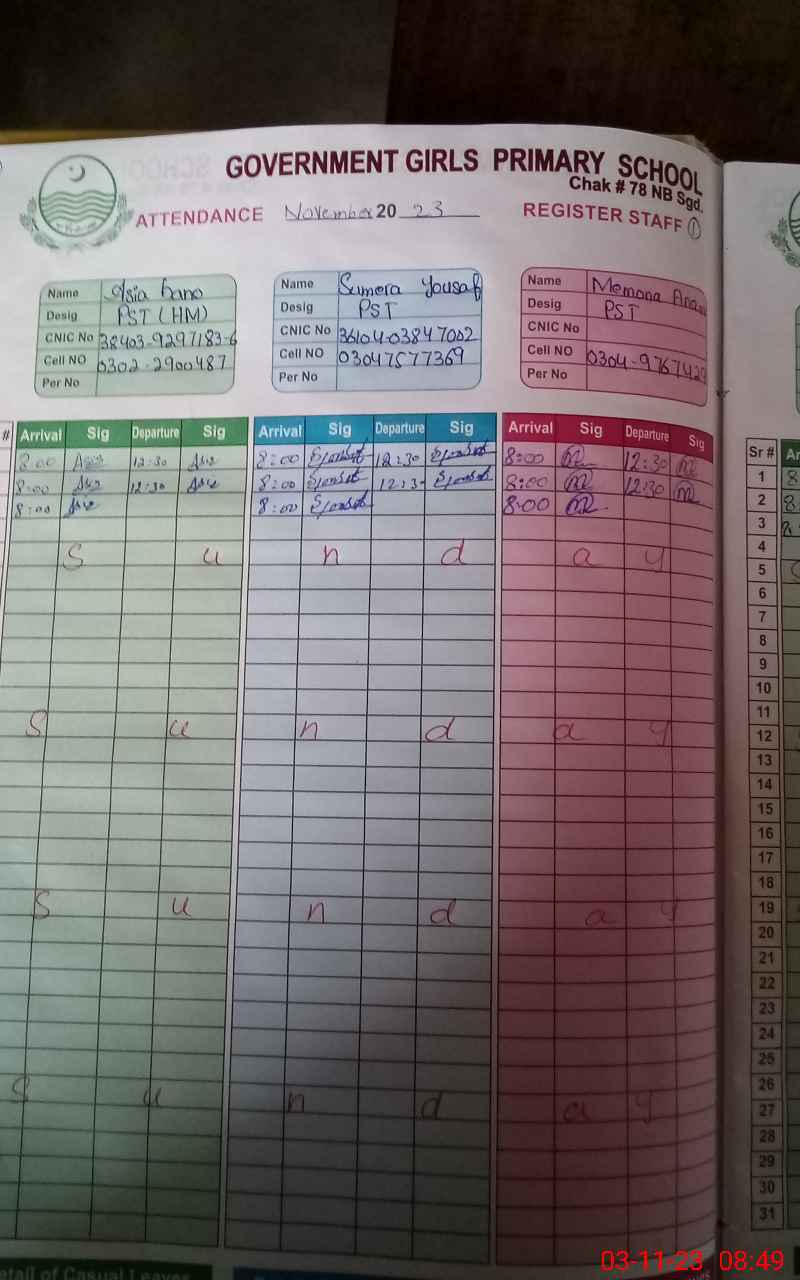 GOVERNMENT GIRLS PRIMARY SCHOOL
Chak # 78 NB Sgd.
ATTENDANCE November 20 23 REGISTER STAFF 1
Name Asia bano
Desig PST (HM)
CNIC No 38403-9297183-6
Cell NO 0302-2900487
Per No
Name Sumera Yousaf
Desig PST
CNIC No 36104-03847002
Cell NO 03047577369
Per No
Name Memona
Desig PST
CNIC No
Cell NO 0304-9767429
Per No
# Arrival Sig Departure Sig Arrival Sig Departure Sig Arrival Sig Departure Sig Sr # Ar
8:00 12:30 8:00 12:30 8:00 12:30 1 8
8:00 12:30 8:00 12:3 8:00 12:30 2 8
8:00 8:00 8:00 3 8
4
S u n d a y 5
6
7
8
9
10
11
S u n d a y 12
13
14
15
16
17
18
S u n d a y 19
20
21
22
23
24
25
S u n d a y 26
27
28
29
30
31
etail of Casual Leaves
03-11-23 08:49